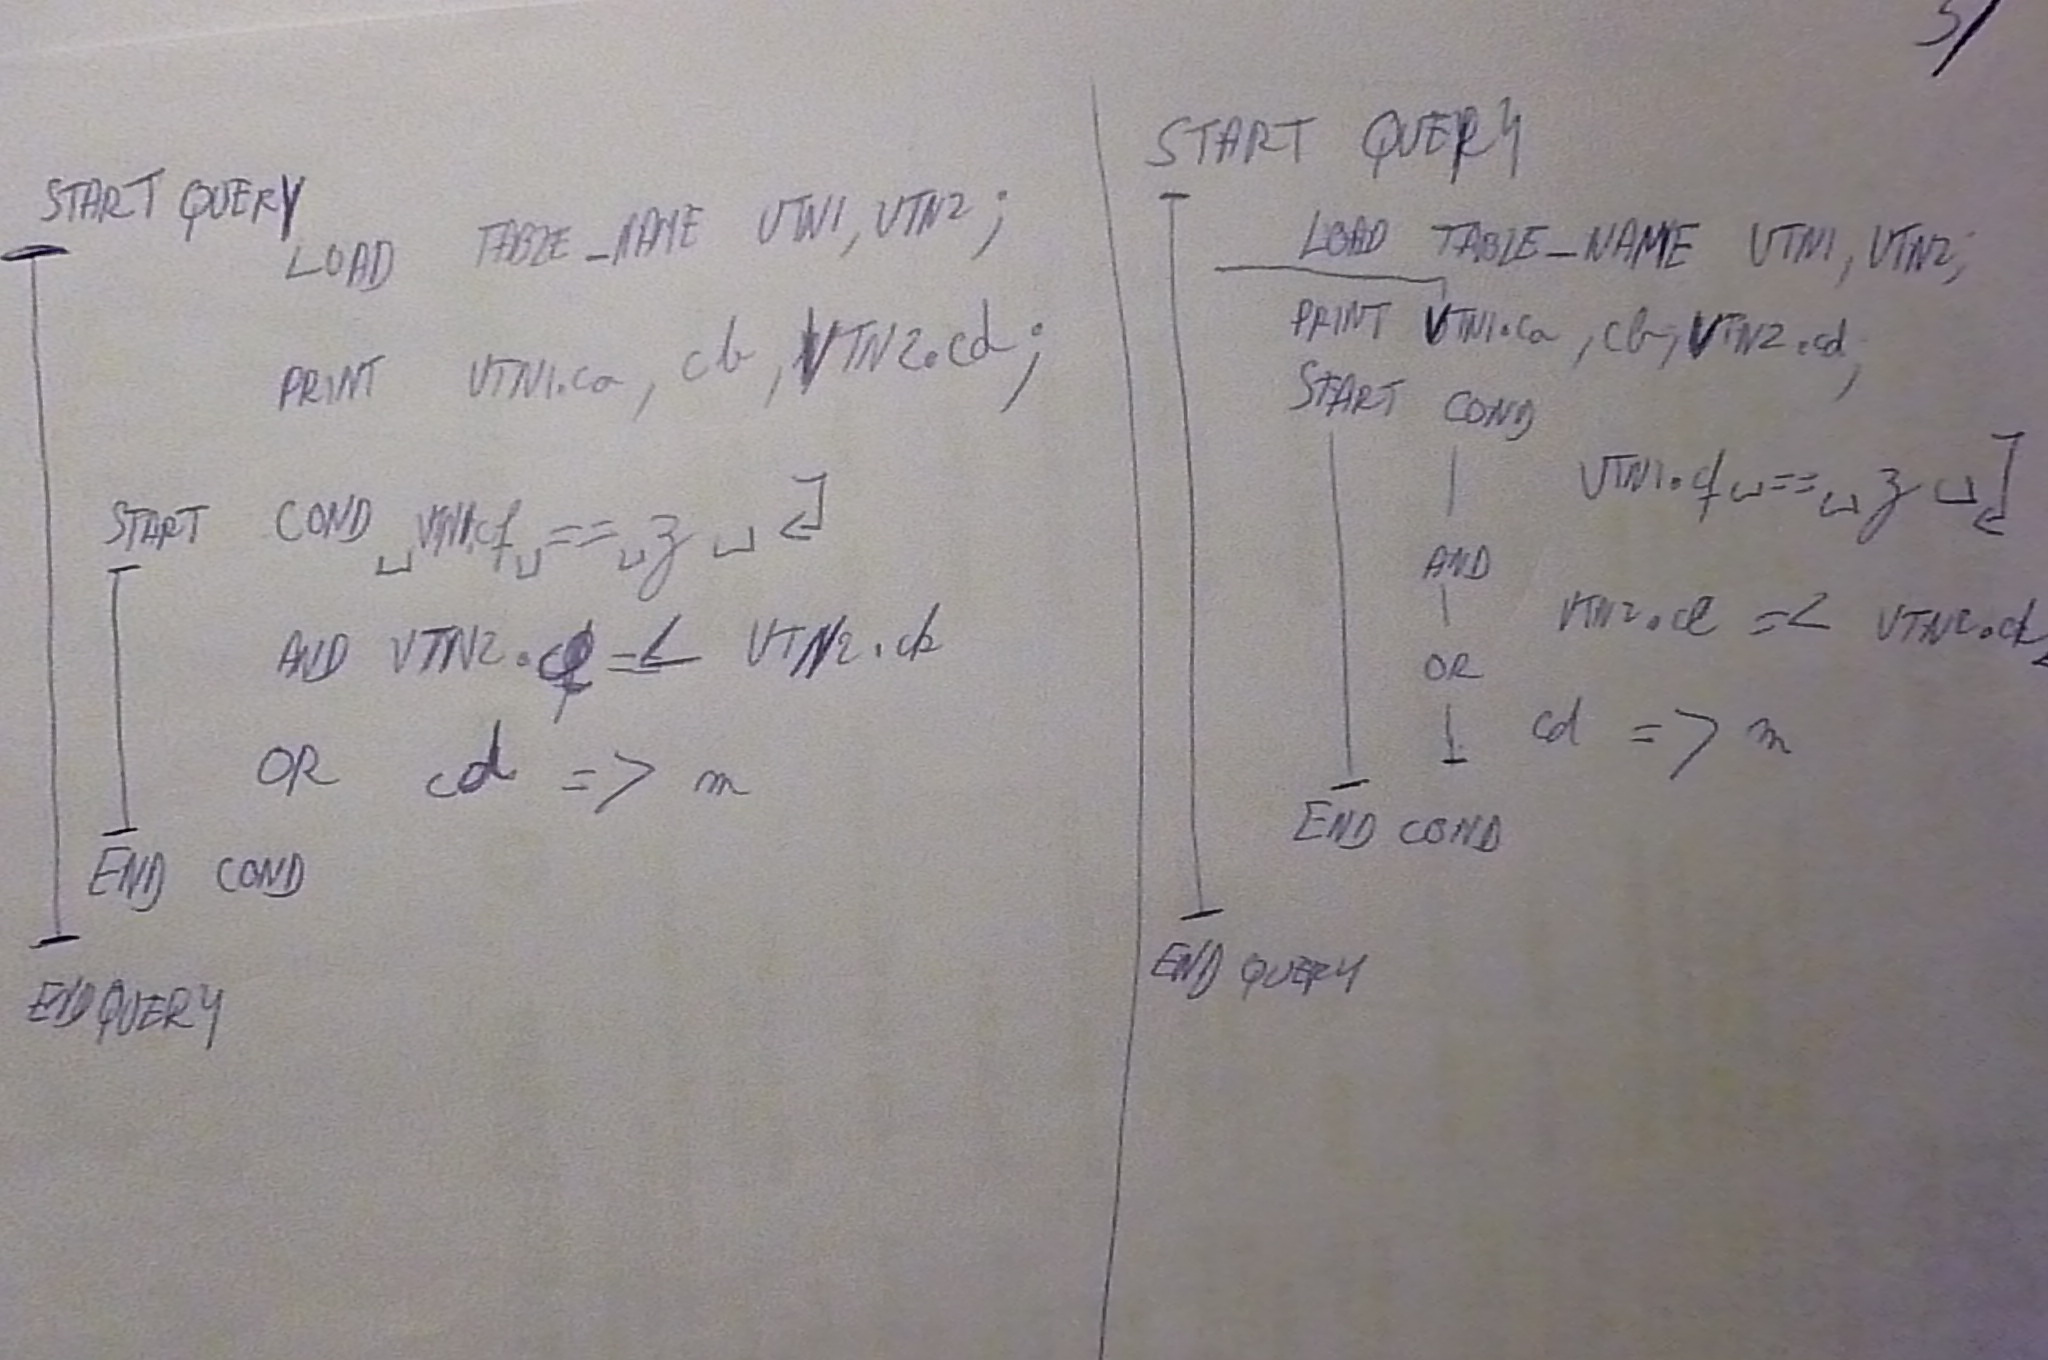 5/
START QUERY
LOAD TABLE_NAME VTN1, VTN2;
PRINT VTN1.ca, cb, VTN2.cd;
START COND ␣ VTN1.cf ␣ == ␣ z ␣ ↵
AND VTN2. =< VTN2.ck
OR cd => m
END COND
END QUERY
START QUERY
LOAD TABLE_NAME VTN1, VTN2;
PRINT VTN1.ca, cb, VTN2.cd;
START COND
VTN1.cf ␣ == ␣ z ␣ ↵
AND
VTN2.cl =< VTN2.ck
OR
cd => m
END COND
END QUERY